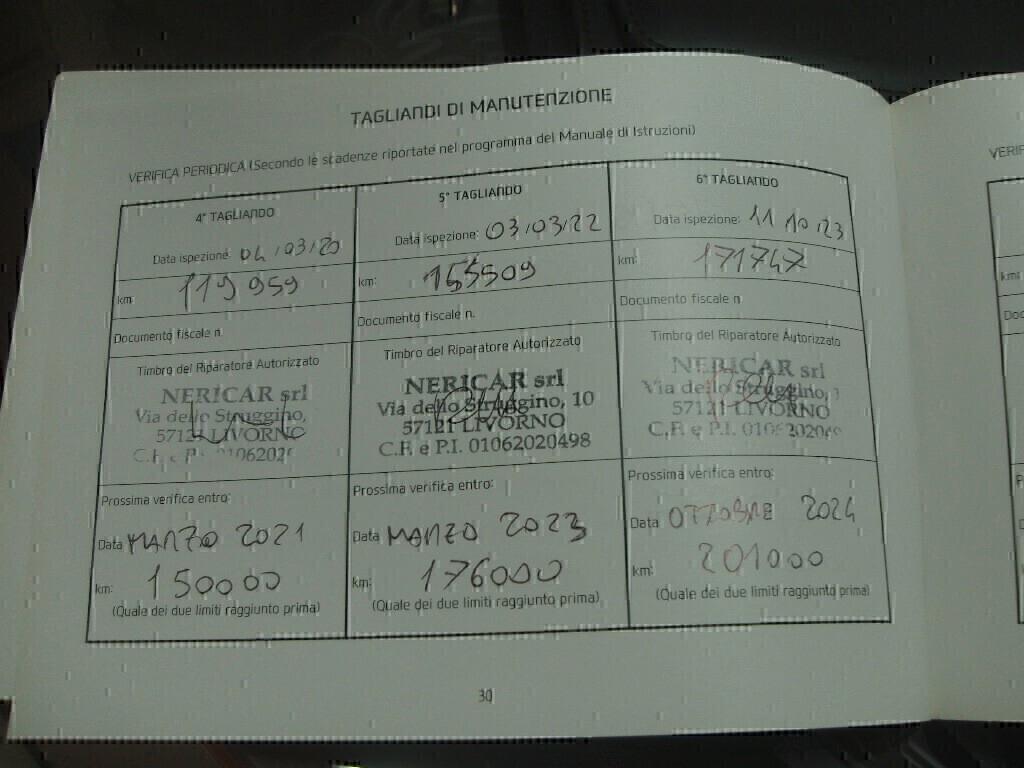 TAGLIANDI DI MANUTENZIONE
VERIFICA PERIODICA (Secondo le scadenze riportate nel programma del Manuale di Istruzioni)
4° TAGLIANDO
Data ispezione: 04/03/20
km: 119959
Documento fiscale n.
Timbro del Riparatore Autorizzato
NERICAR srl
Via dello Struggino,
57121 LIVORNO
Prossima verifica entro:
Data MARZO 2021
km: 150000
(Quale dei due limiti raggiunto prima)
5° TAGLIANDO
Data ispezione: 03/03/22
km: 155509
Documento fiscale n.
Timbro del Riparatore Autorizzato
NERICAR srl
Via dello Struggino, 10
57121 LIVORNO
C.F. e P.I. 01062020498
Prossima verifica entro:
Data MARZO 2023
km: 176000
(Quale dei due limiti raggiunto prima)
6° TAGLIANDO
Data ispezione: 11 10 23
km: 171747
Documento fiscale n
Timbro del Riparatore Autorizzato
NERICAR srl
Via dello Struggino,
57121 LIVORNO
C.F. e P.I.
Prossima verifica entro:
Data OTTOBRE 2024
km: 201000
(Quale dei due limiti raggiunto prima)
30